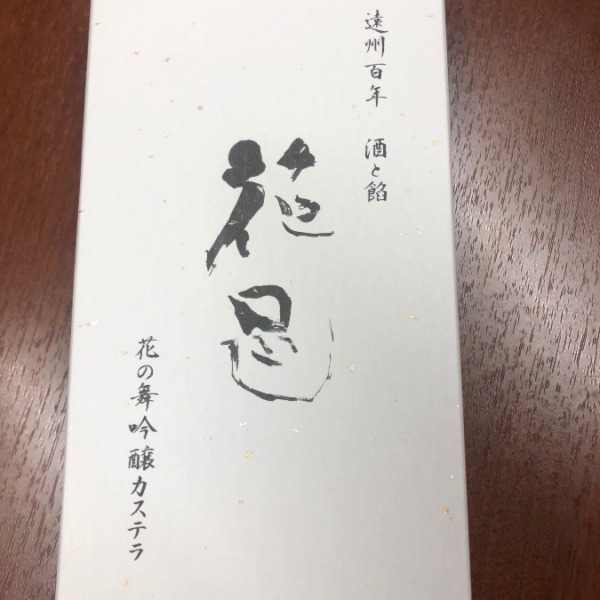 遠州百年　酒と餡
花邑
花の舞吟醸カステラ